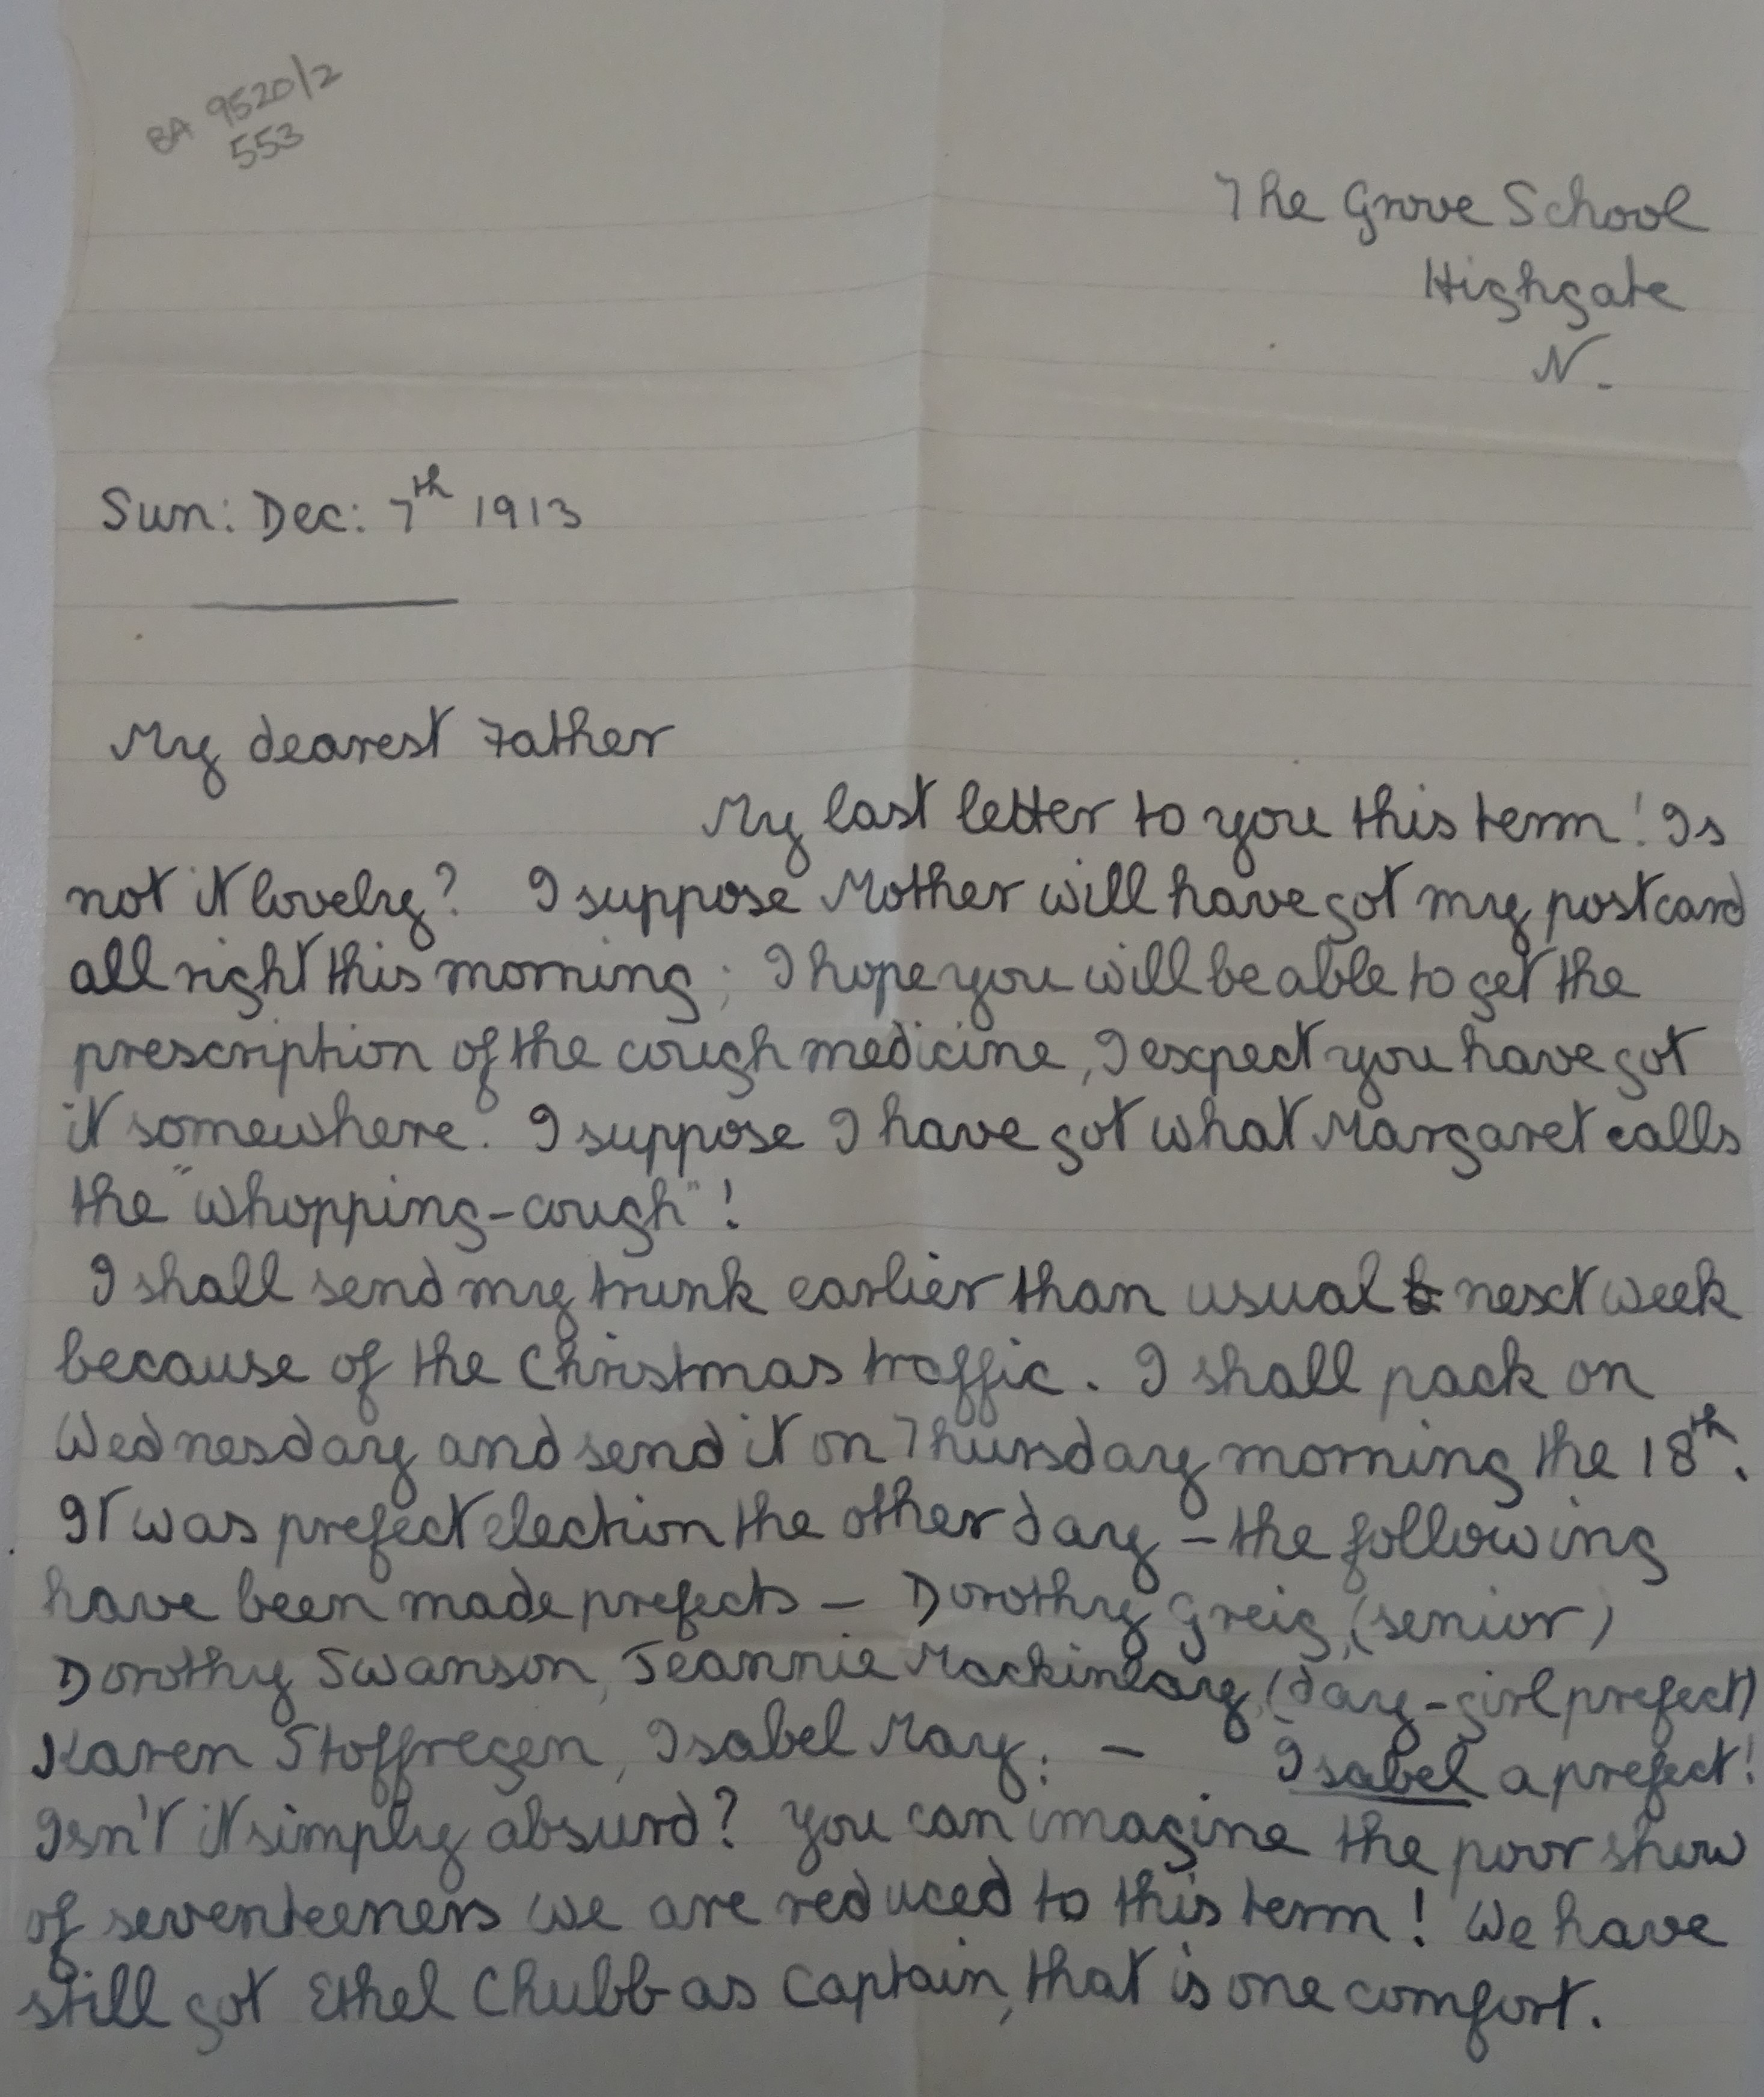 BA 9520/2
553
The Grove School
Highgate
N.
Sun: Dec: 7th 1913
My dearest Father
My last letter to you this term! Is
not it lovely? I suppose Mother will have got my postcard
all right this morning; I hope you will be able to get the
prescription of the cough medicine, I expect you have got
it somewhere. I suppose I have got what Margaret calls
the "whopping-cough"!
I shall send my trunk earlier than usual next week
because of the Christmas traffic. I shall pack on
Wednesday and send it on Thursday morning the 18th.
It was prefect election the other day – the following
have been made prefects – Dorothy Greig, (senior)
Dorothy Swanson, Jeannie Mackinlay, (day-girl prefect)
Karen Stoffregen, Isabel May; – Isabel a prefect!
Isn't it simply absurd? You can imagine the poor show
of seventeeners we are reduced to this term! We have
still got Ethel Chubb as Captain, that is one comfort.